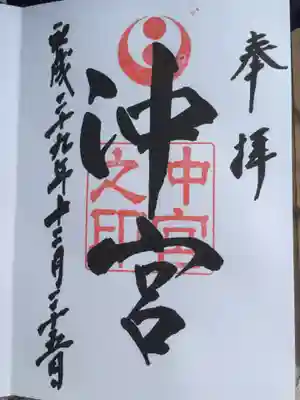 奉拝
沖宮
中宮
之印
平成二十九年十二月二十五日